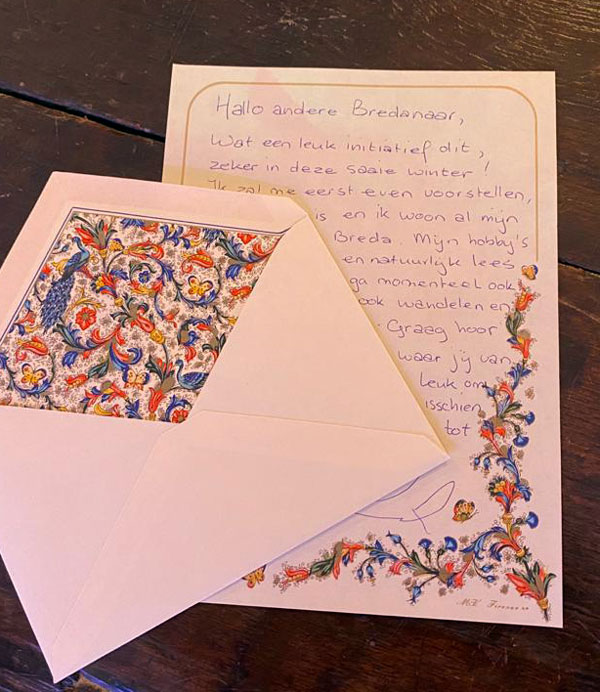 Hallo andere Bredanaar,
Wat een leuk initiatief dit,
zeker in deze saaie winter!
Ik zal me eerst even voorstellen,
is en ik woon al mijn
Breda. Mijn hobby's
en natuurlijk lees
ga momenteel ook
ook wandelen en
. Graag hoor
waar jij van
Leuk om
isschien
tot